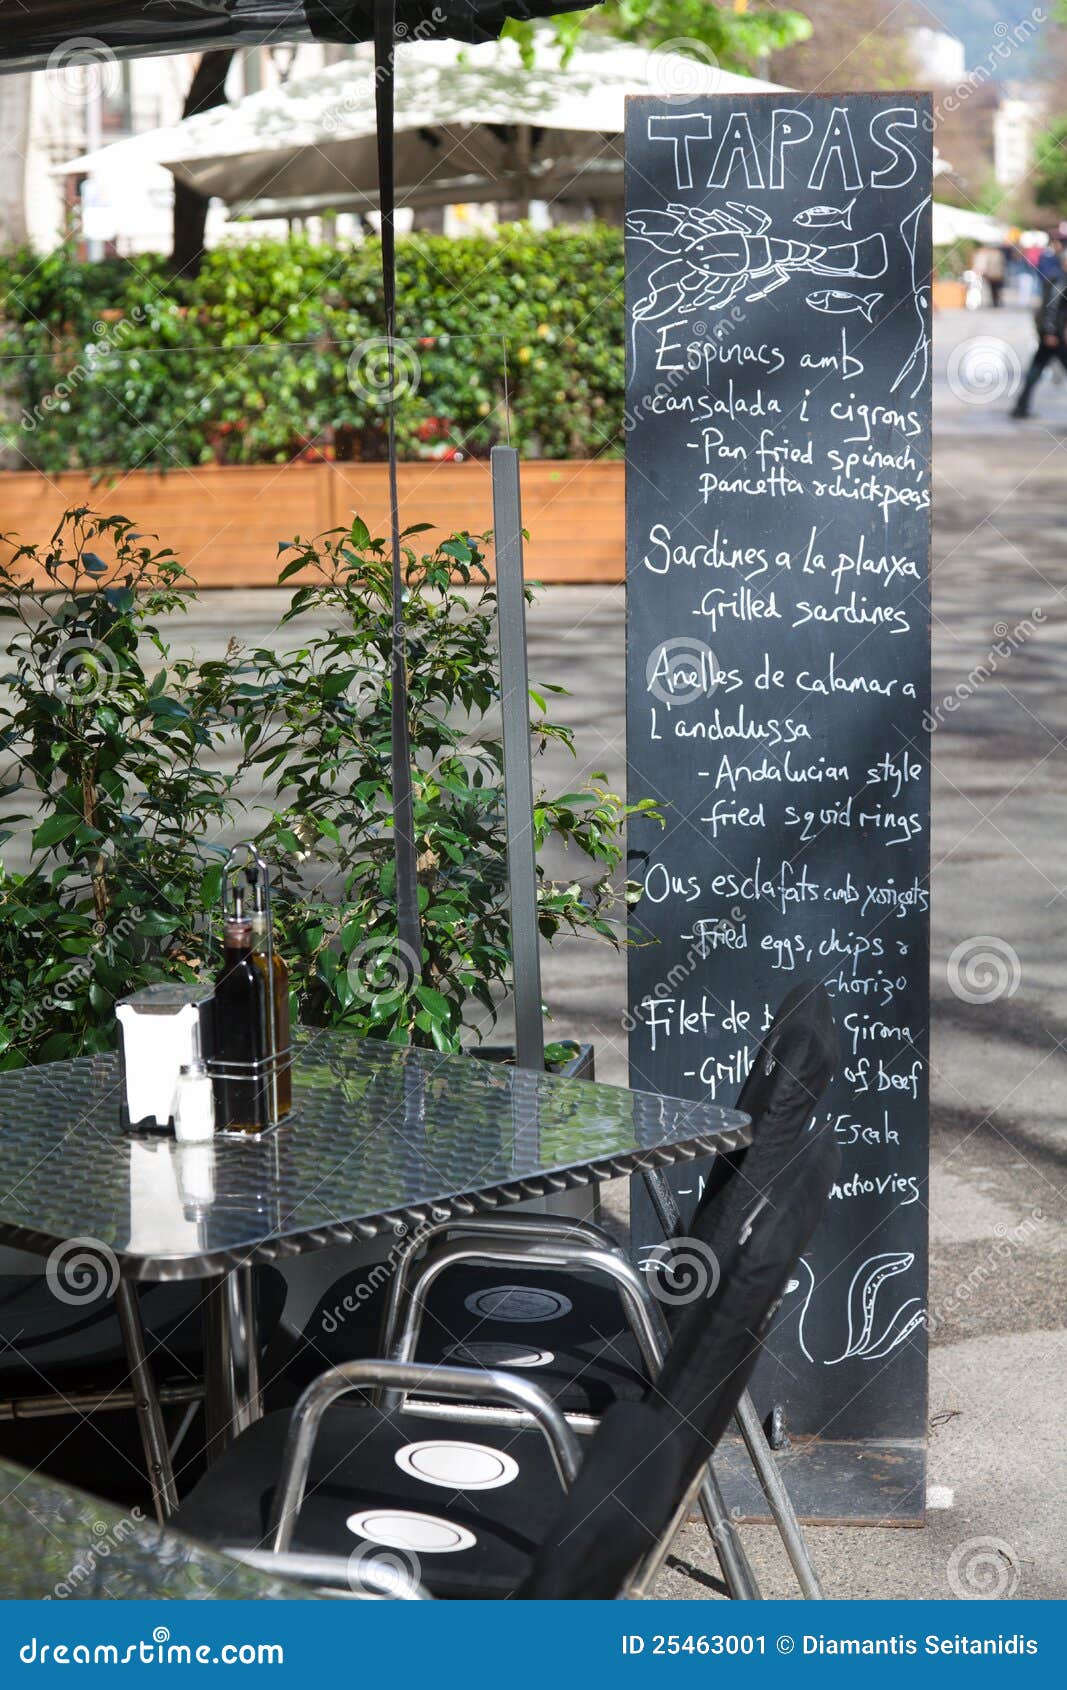 TAPAS
Espinacs amb
cansalada i cigrons
-Pan fried spinach,
pancetta & chickpeas
Sardines a La planxa
-Grilled sardines
Anelles de calamar a
L'andalussa
-Andalucian style
fried squid rings
Ous esclafats amb xoriçets
-Fried eggs, chips &
chorizo
Filet de Girona
-Grill of beef
l'Escala
anchovies
dreamstime.com
ID 25463001 © Diamantis Seitanidis